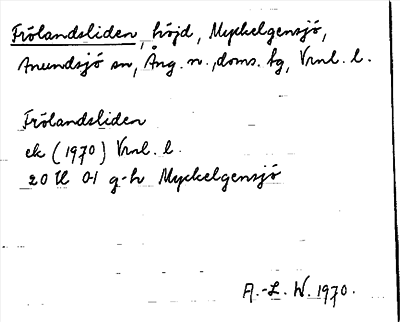 Frölandsliden, höjd, Myckelgensjö,
Anundsjö sn, Ång. n., doms. fg, Vrnl. l.
Frölandsliden
ek (1970) Vrnl. l.
20H 0-1 g-h Myckelgensjö
A.-L. W. 1970.